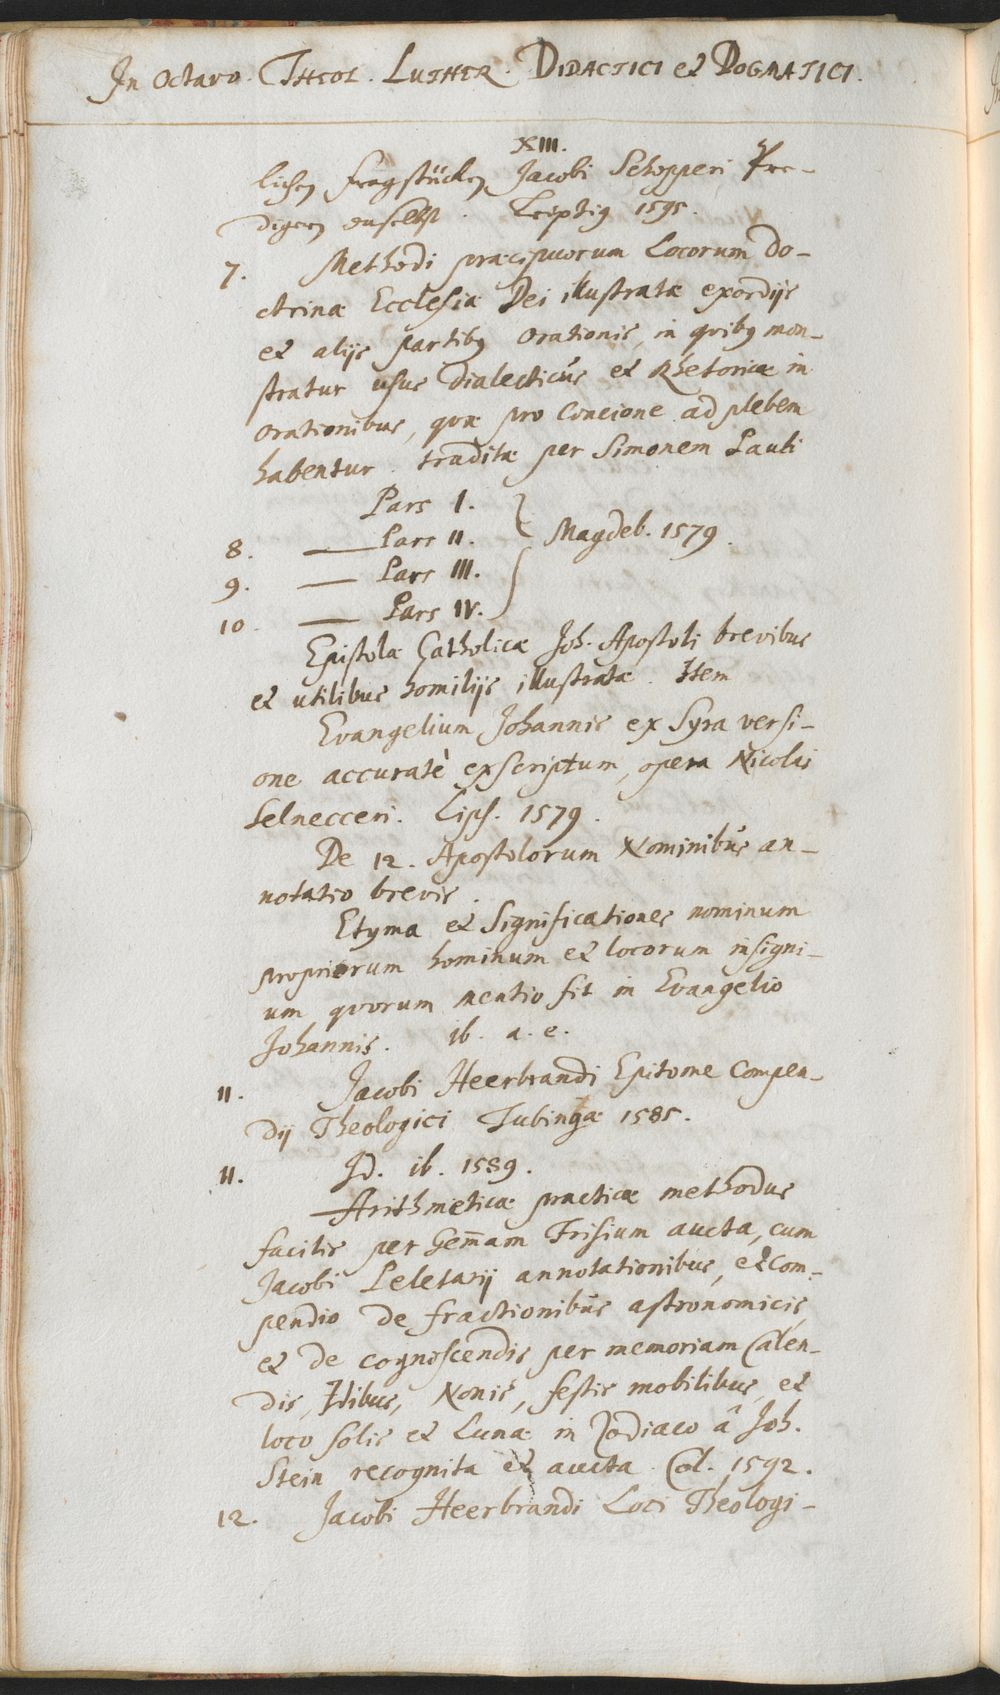 In Octavo. THEOL. LUTHER. DIDACTICI et DOGMATICI.
XIII.
lichen fragstücken Jacobi Schopperi Pre-
digern duselbst. Leiptzig 1595.
7. Methodi præcipuorum Locorum do-
ctrinæ Ecclesiæ Dei illustratæ exordijs
et alijs partibus Orationis, in quibus mon-
stratur usus Dialecticus et Rhetoricæ in
Orationibus, quæ pro Concione ad plebem
habentur. traditæ per Simonem Pauli
Pars I.
8. — Pars II. } Magdeb. 1579.
9. — Pars III.
10. — Pars IV.
Epistolæ Catholicæ Joh. Apostoli brevibus
et utilibus homilijs illustratæ. Item
Evangelium Johannis ex Syra versi-
one accuratè exscriptum, opera Nicolai
Selnecceri. Lips. 1579.
De 12. Apostolorum Nominibus an-
notatio brevis.
Etyma et Significationes nominum
propriorum hominum et locorum insigni-
um quorum mentio fit in Evangelio
Johannis. ib. a. e.
11. Jacobi Heerbrandi Epitome Compen-
dij Theologici Tubingæ 1585.
11. Id. ib. 1589.
Arithmeticæ practicæ methodus
facilis per Gem̄am Frisium aucta, cum
Jacobi Peletarij annotationibus, et com-
pendio de fractionibus astronomicis,
et de cognoscendis per memoriam Calen-
dis, Idibus, Nonis, festis mobilibus, et
loco Solis et Lunæ in Zodiaco â Joh.
Stein recognita et aucta. Col. 1592.
12. Jacobi Heerbrandi Loci Theologi-